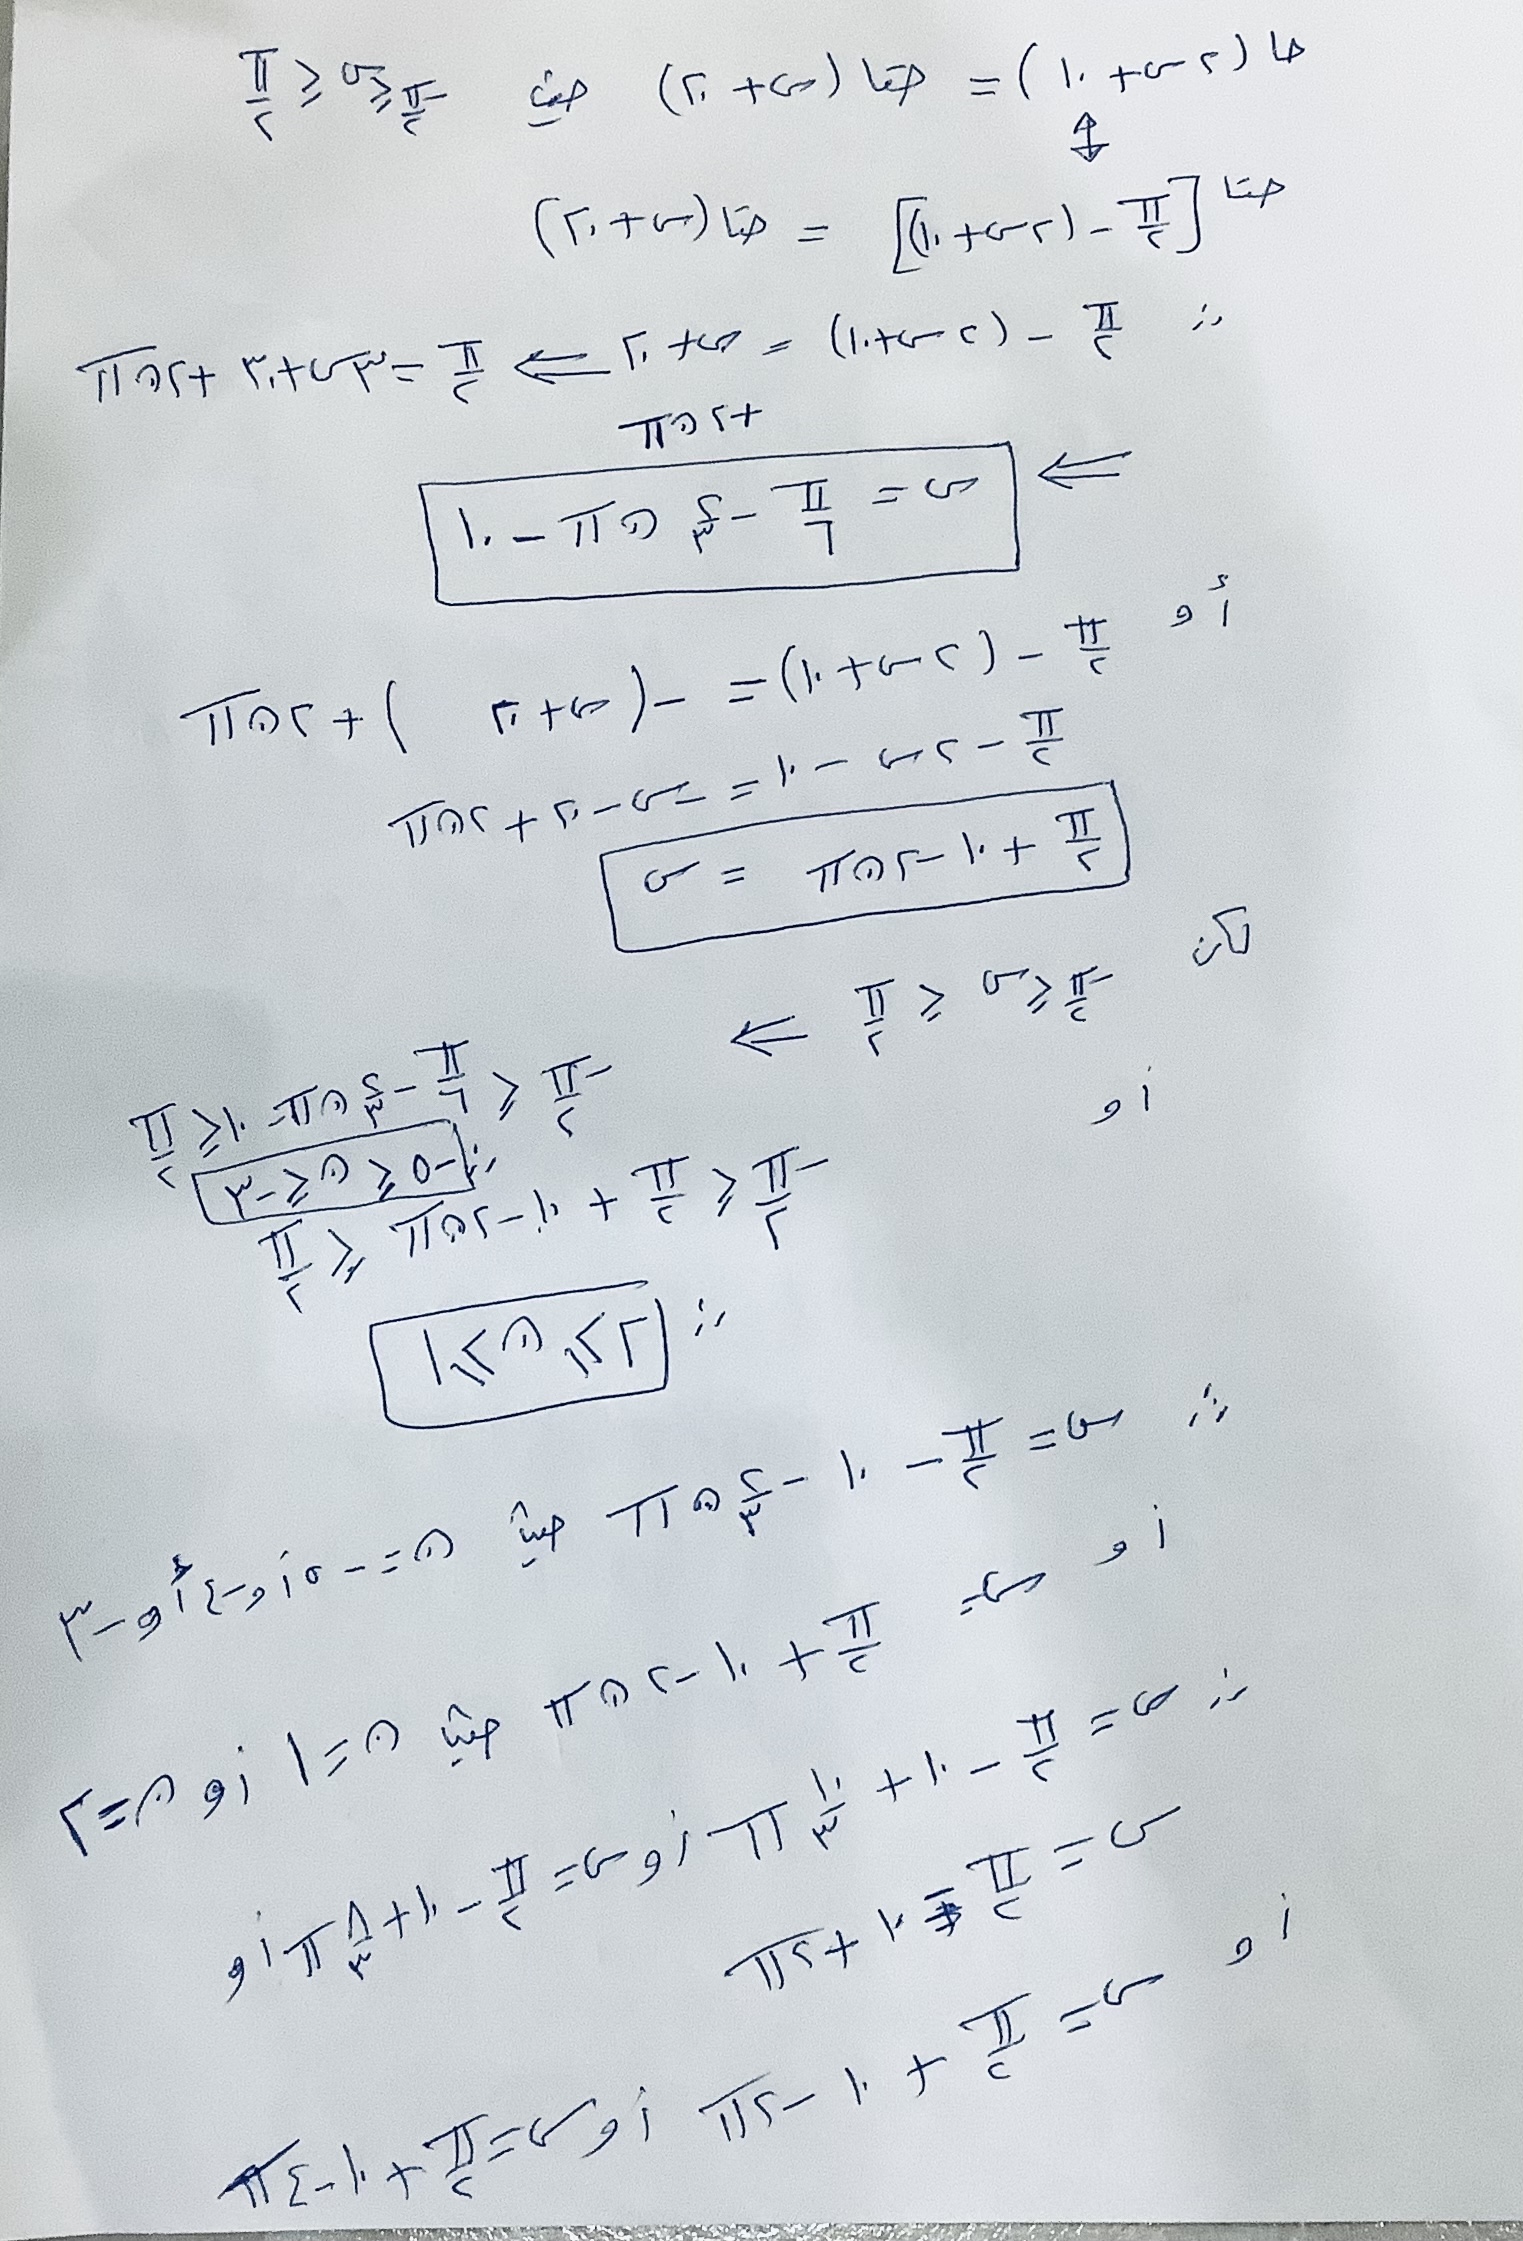 حا (٢س + ١٠) = حتا (س + ٢٠) حيث -π/٢ ≤ س ≤ π/٢
حتا [π/٢ - (٢س + ١٠)] = حتا (س + ٢٠)
∴ π/٢ - (٢س + ١٠) = س + ٢٠ ⇐ π/٢ = ٣س + ٣٠ + ٢نπ
+ ٢نπ
⇐ س = π/٦ - ٢/٣ نπ - ١٠
أو π/٢ - (٢س + ١٠) = -(س + ٢٠) + ٢نπ
π/٢ - ٢س - ١٠ = -س - ٢٠ + ٢نπ
π/٢ + ١٠ - ٢نπ = س
لكن -π/٢ ≤ س ≤ π/٢ ⇐
-π/٢ ≤ π/٦ - ٢/٣ نπ - ١٠ ≤ π/٢
∴ -٥ ≤ ن ≤ -٣
أو -π/٢ ≤ π/٢ + ١٠ - ٢نπ ≤ π/٢
∴ ٢,٢ ≥ ن ≥ ١,٢
∴ س = π/٢ - ١٠ - ٢/٣ نπ حيث ن = -٥ أو -٤ أو -٣
أو س = π/٢ + ١٠ - ٢نπ حيث ن = ١ أو ن = ٢
∴ س = π/٢ - ١٠ + ١٠/٣ π أو س = π/٢ - ١٠ + ٨/٣ π أو
س = π/٢ - ١٠ + ٢π
أو س = π/٢ + ١٠ - ٢π أو س = π/٢ + ١٠ - ٤π